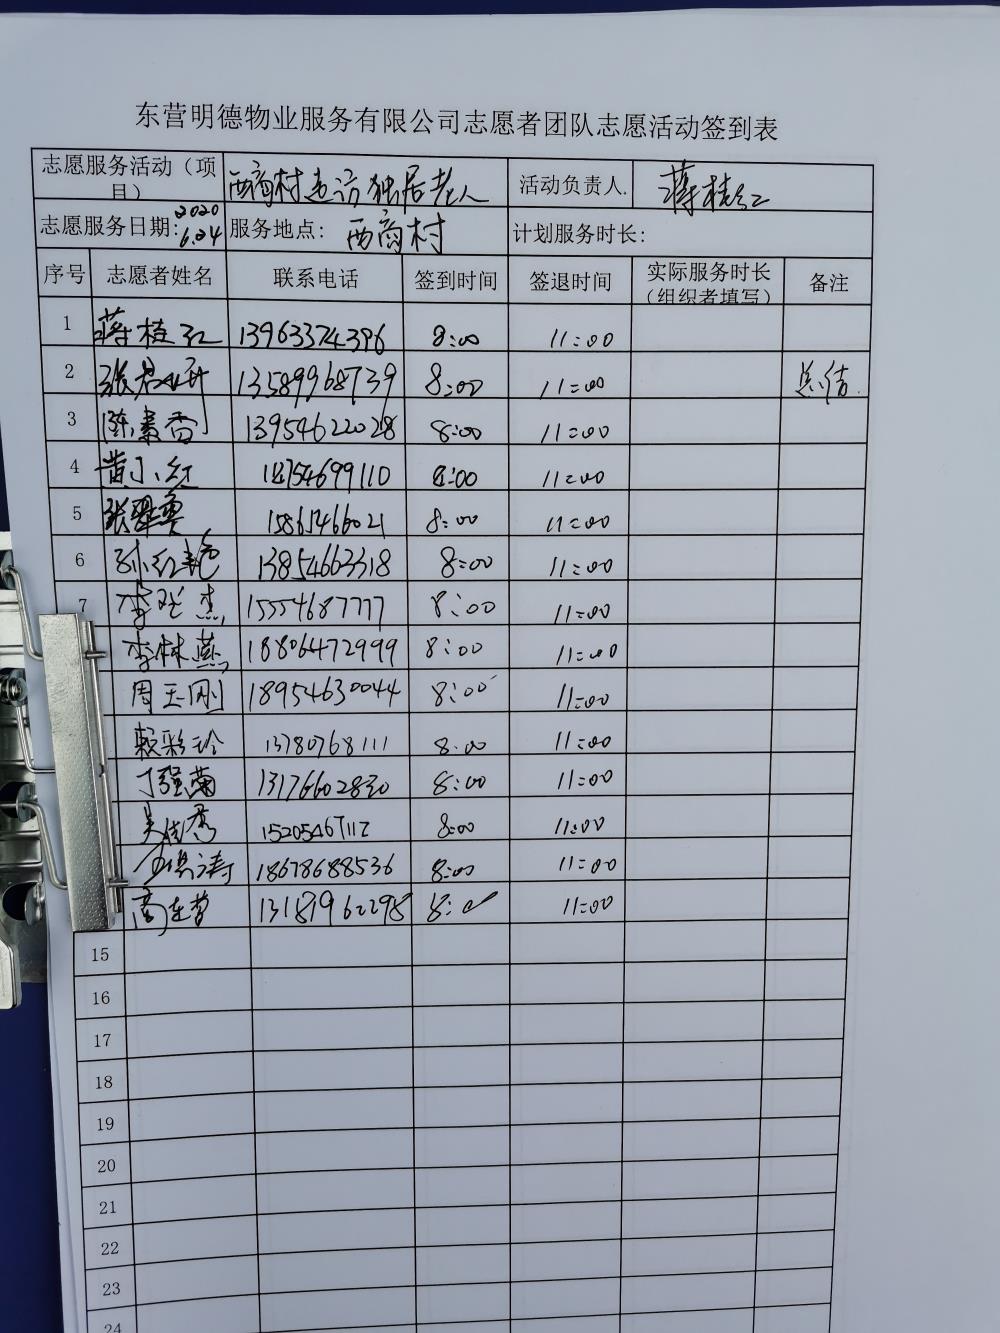 东营明德物业服务有限公司志愿者团队志愿活动签到表
志愿服务活动（项目） 西商村走访独居老人 活动负责人 蒋桂红
志愿服务日期: 2020 6.24 服务地点: 西商村 计划服务时长:
序号 志愿者姓名 联系电话 签到时间 签退时间 实际服务时长（组织者填写） 备注
1 蒋桂红 13963374396 8:00 11:00
2 13589968739 8:00 11:00 总结
3 陈素香 13954622028 8:00 11:00
4 黄小红 18754699110 8:00 11:00
5 张翠粤 8:00 11:00
6 孙红艳 13854663318 8:00 11:00
7 杰 15554687777 8:00 11:00
李林燕 18806472999 8:00 11:00
周玉刚 18954630044 8:00 11:00
彩玲 13780768111 8:00 11:00
丁强菊 13176602830 8:00 11:00
秀 15205467112 8:00 11:00
涛 18678688536 8:00 11:00
商东营 13181962298 8:0 11:00
15
16
17
18
19
20
21
22
23
24